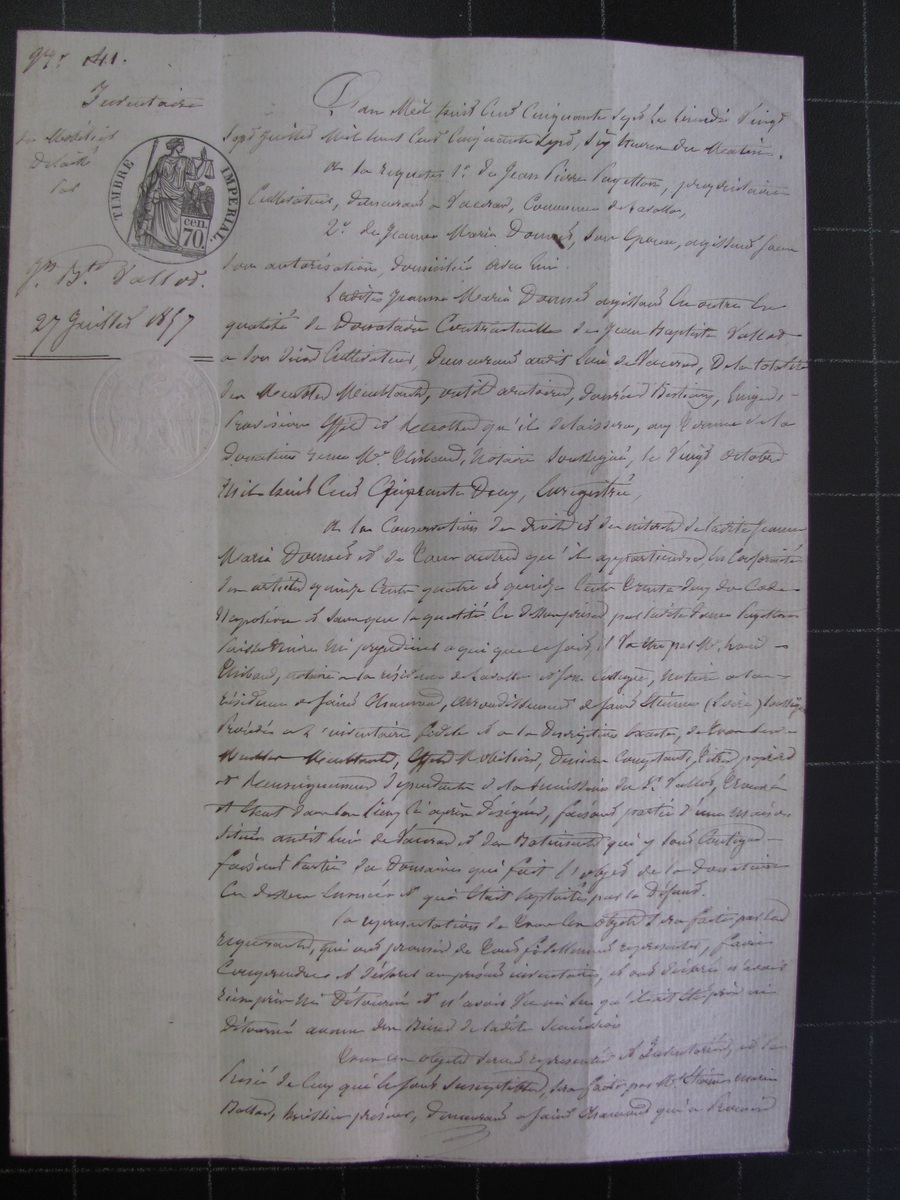 Nº 41.
Inventaire
du Mobilier
Délaissé
par
TIMBRE IMPERIAL.
cen.
70
Jn. Bte. Vallod.
27 Juillet 1857
L'an Mil huit Cent Cinquante Sept le Lundi Vingt
Sept Juillet Mil huit Cent Cinquante Sept, Six heures du Matin.
A la requête 1º. de Jean Pierre, propriétaire
Cultivateur, demeurant à, Commune de Lavalla,
2º. de Jeanne Marie, son épouse, agissant sous
son autorisation, domiciliée avec lui.
Ladite Jeanne Marie agissant en outre en
qualité de Donataire Contractuelle de Jean Baptiste Vallod
Cultivateur, demeurant audit Lieu de, De la totalité
des Meubles Meublants, outils aratoires, denrées Bestiaux, Linges
Provisions Effets et Récoltes qu'il délaissera, aux termes de la
donation reçue Me. Thibaud, Notaire Soussigné, le Vingt octobre
Mil huit Cent Cinquante Deux, Enregistrée,
A la Conservation des droits et des intérêts de ladite Jeanne
Marie et de tous autres qu'il appartiendra, en Conformité
des articles quinze Cents quatre et quinze Cents trente deux du Code
Napoléon et sans que la qualité ci dessus prise par ladite
puisse nuire ni préjudicier à qui que ce soit, il va être par Me.
Thibaud, notaire à la résidence de Lavalla et son Collègue, Notaire à la
résidence de Saint Chamond, arrondissement de Saint Etienne (Loire) Soussignés
Procédé à l'inventaire fidèle et à la Description Exacte, de tous les
Meubles Meublants, Effets Mobiliers, Deniers Comptants, Titres papiers
et Renseignements dépendants de la Succession du Sr. Vallod, trouvés
et étant dans les lieux ci après désignés, faisant partie d'une maison
située audit lieu de et des Batiments qui y sont Contigus
faisant Partie du Domaine qui fait l'objet de la Donation
Ci dessus énoncée et qui était exploité par le Défunt.
La représentation de tous les objets sera faite par les
requérants, qui ont promis de tout fidèlement représenter, faire
Comprendre et déclarer au présent inventaire, et ont déclaré n'avoir
rien pris ni Détourné et n'avoir vu ni su qu'il ait été pris ni
détourné aucun des Biens de ladite Succession
Tous les objets seront représentés et Inventoriés, et la
Prisée de Ceux qui le sont susceptibles, sera faite par Me. Etienne Marie
huissier priseur, demeurant à Saint Chamond qui a Promis